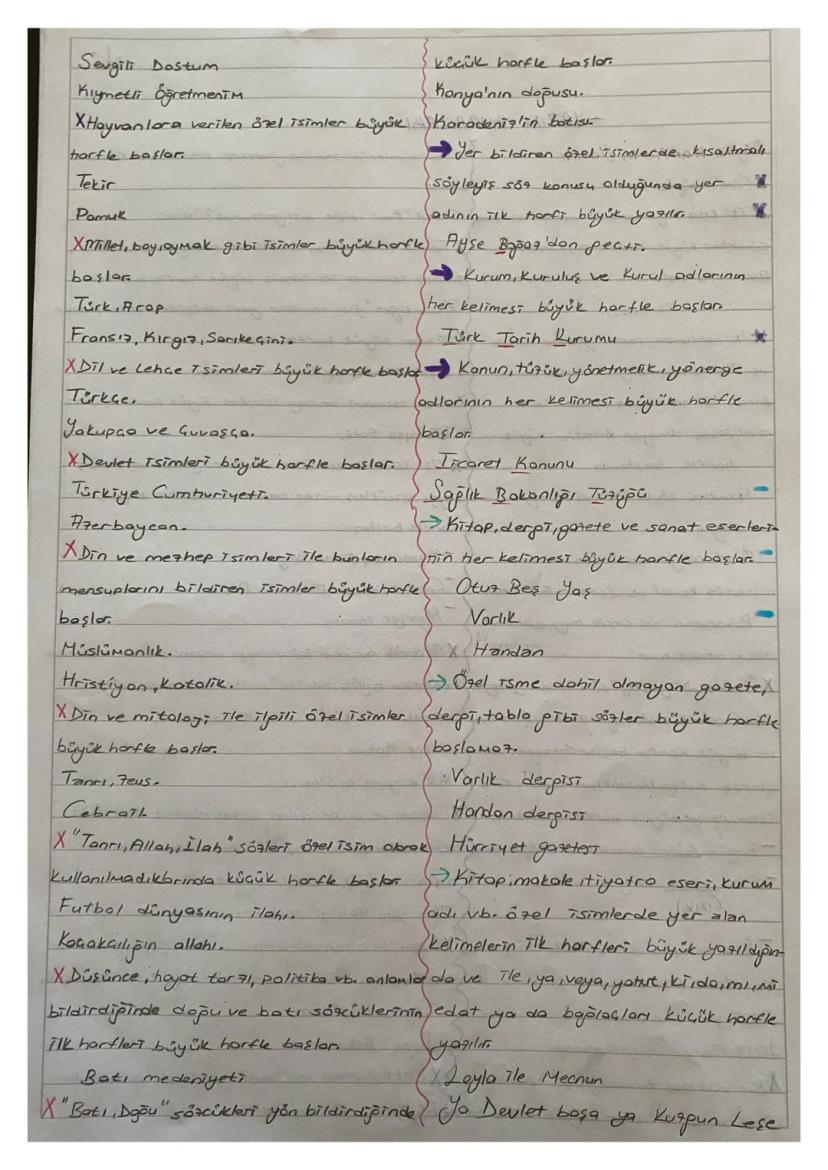 Sevgili Dostum
Kıymetli Öğretmenim
X Hayvanlara verilen özel isimler büyük
harfle başlar.
Tekir
Pamuk
X Millet, boy, oymak gibi isimler büyük harfle
başlar.
Türk, Arap
Fransız, Kırgız, Sarıkeçini.
X Dil ve Lehçe isimleri büyük harfle başlar
Türkçe.
Yakupça ve Çuvaşça.
X Devlet isimleri büyük harfle başlar.
Türkiye Cumhuriyeti.
Azerbaycan.
X Din ve mezhep isimleri ile bunların
mensuplarını bildiren isimler büyük harfle
başlar.
Müslümanlık.
Hristiyan, Katolik.
X Din ve mitoloji ile ilgili özel isimler
büyük harfle başlar.
Tanrı, Zeus.
Cebrail.
X "Tanrı, Allah, İlah" sözleri özel isim olarak
kullanılmadıklarında küçük harfle başlar
Futbol dünyasının ilahı.
Kaçakçılığın allahı.
X Düşünce, hayat tarzı, politika vb. anlamlar
bildirdiğinde doğu ve batı sözcüklerinin
ilk harfleri büyük harfle başlar.
Batı medeniyeti
X "Batı, Doğu" sözcükleri yön bildirdiğinde
küçük harfle başlar.
Konya'nın doğusu.
Karadeniz'in batısı
→ Yer bildiren özel isimlerde kısaltmalı
söyleyiş söz konusu olduğunda yer
adının ilk harfi büyük yazılır.
Ayşe Boğaz'dan geçti.
→ Kurum, Kuruluş ve Kurul adlarının
her kelimesi büyük harfle başlar.
Türk Tarih Kurumu
→ Kanun, tüzük, yönetmelik, yönerge
adlarının her kelimesi büyük harfle
başlar.
Ticaret Kanunu
Sağlık Bakanlığı Tüzüğü
→ Kitap, dergi, gazete ve sanat eserleri-
nin her kelimesi büyük harfle başlar.
Otuz Beş Yaş
Varlık
X Handan
→ Özel isme dahil olmayan gazete,
dergi, tablo gibi sözler büyük harfle
başlamaz.
Varlık dergisi
Handan dergisi
Hürriyet gazetesi
→ Kitap, makale, tiyatro eseri, kurum
adı vb. özel isimlerde yer alan
kelimelerin ilk harfleri büyük yazıldığın-
da ve ile, ya, veya, yahut, ki, da, mı, mi
edat ya da bağlaçları küçük harfle
yazılır.
Leyla ile Mecnun
Ya Devlet başa ya Kuzgun Leşe